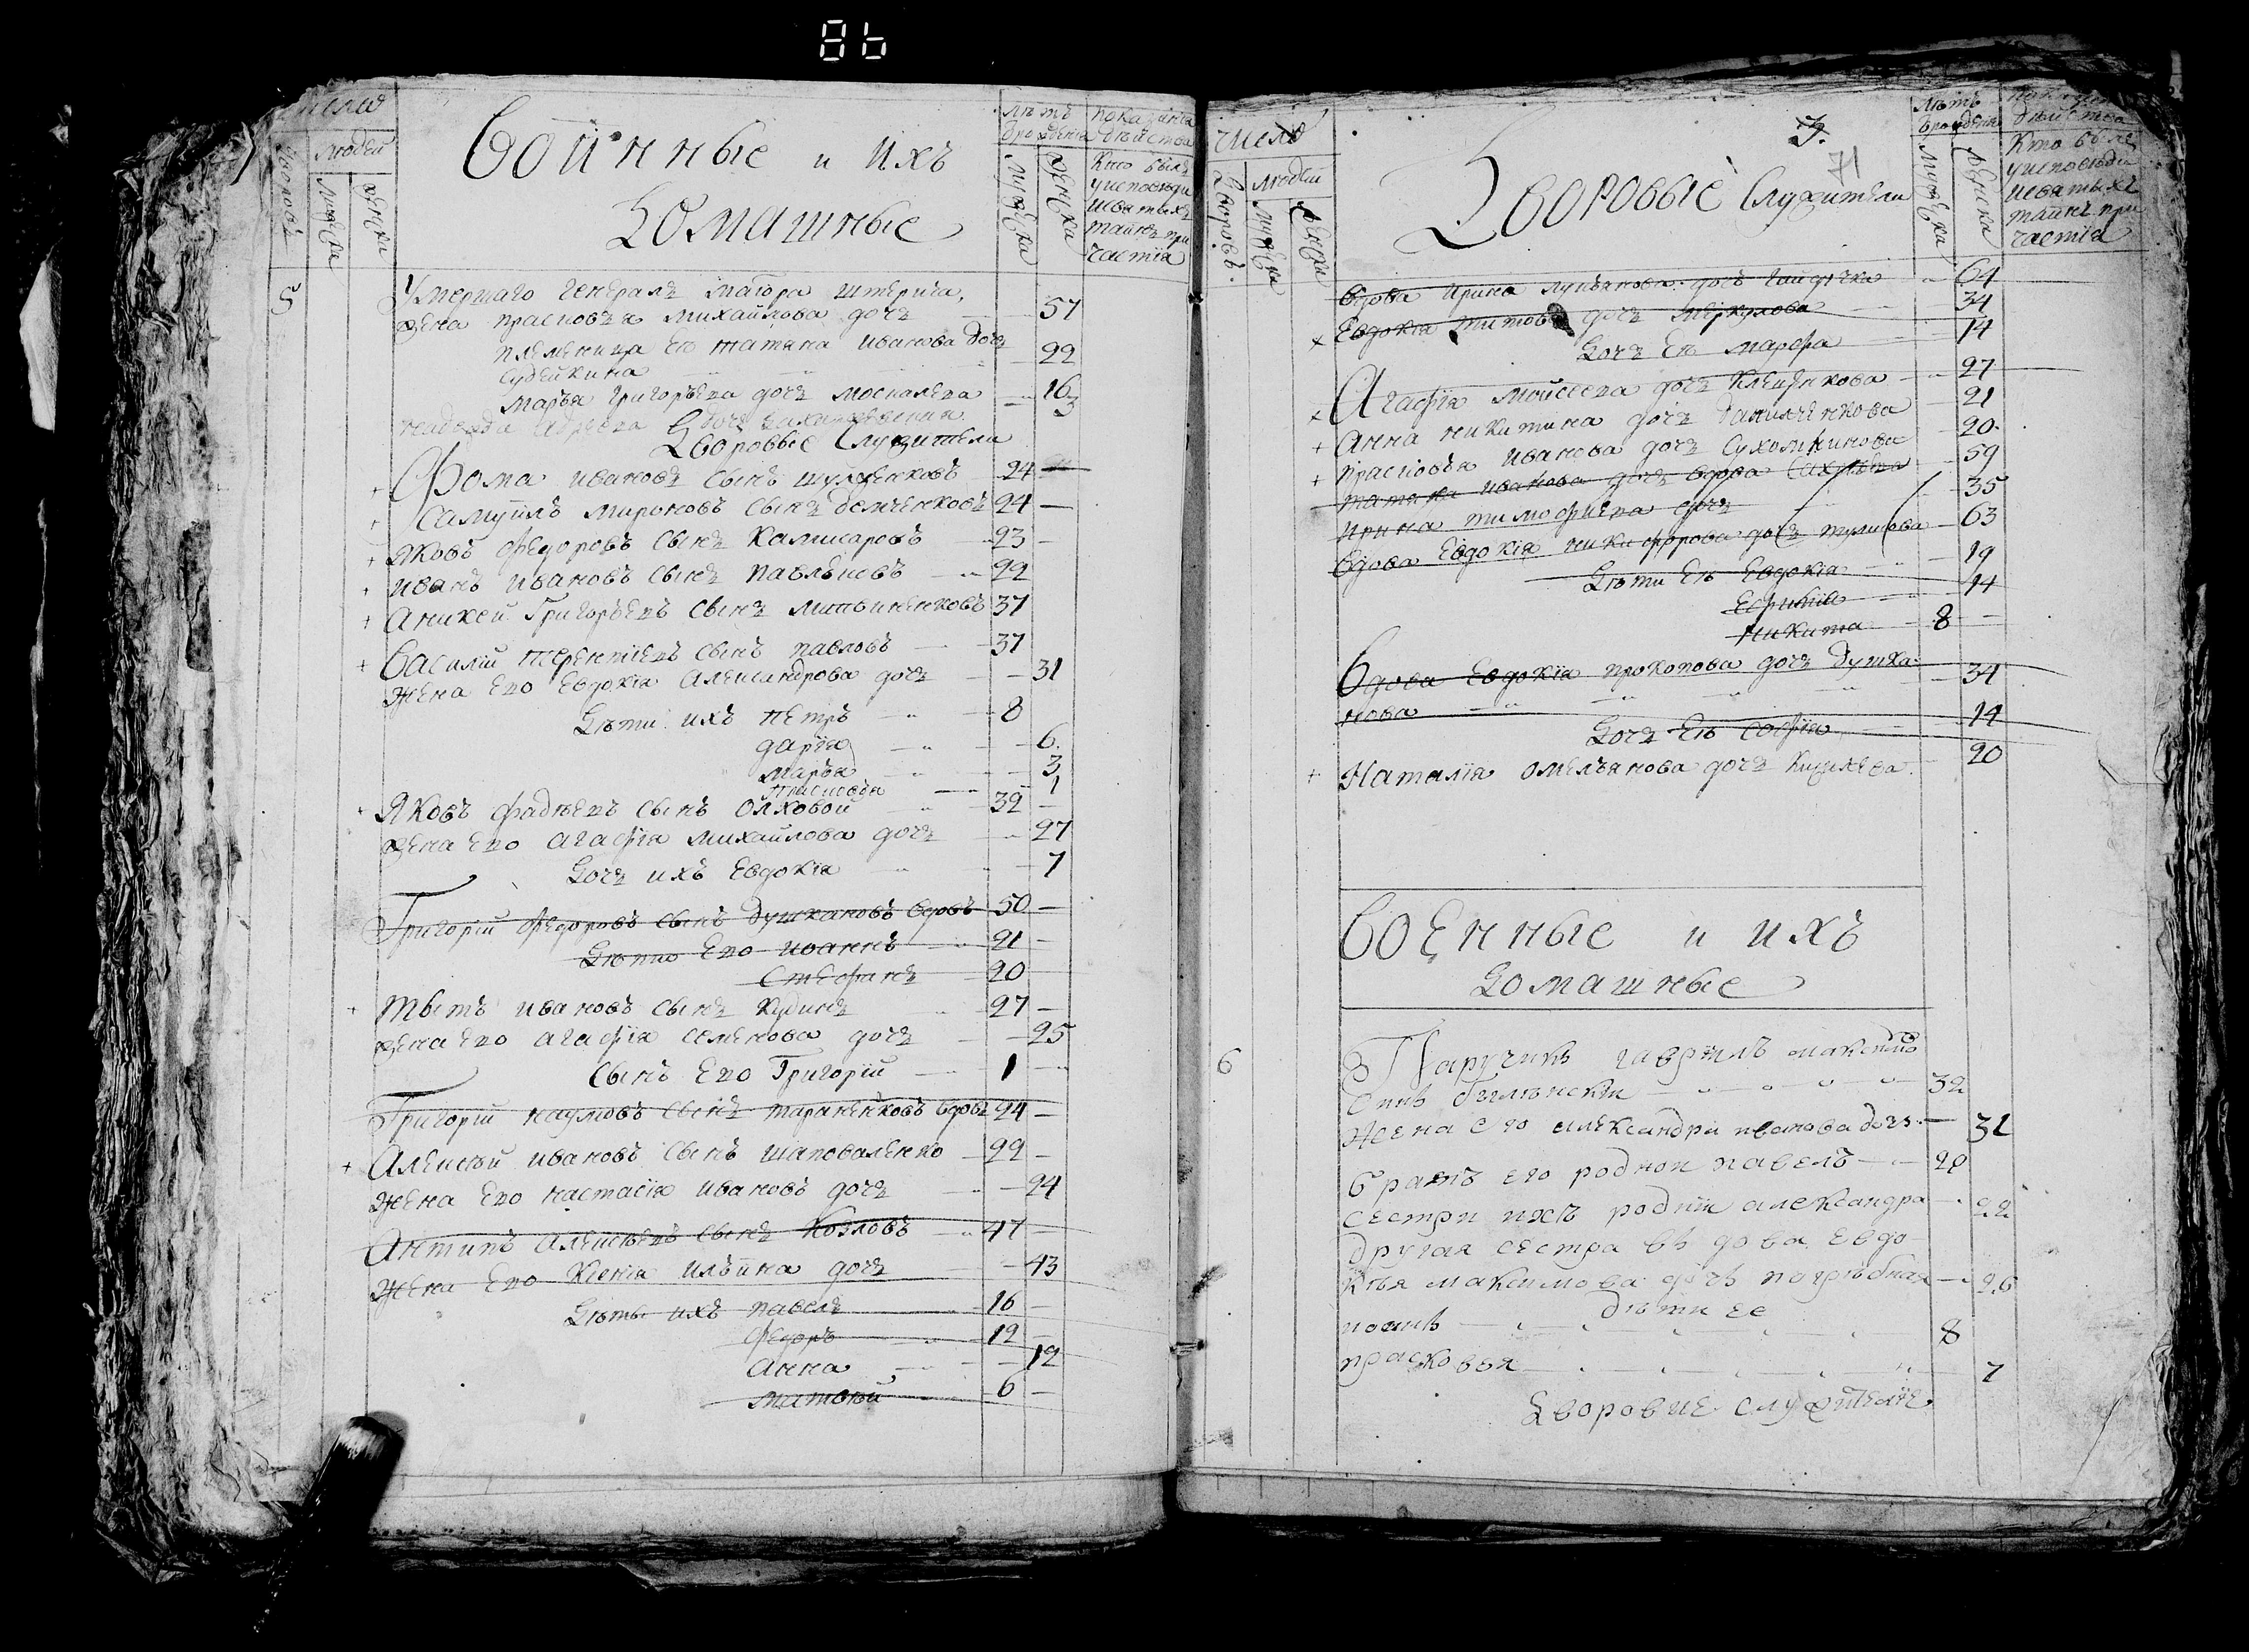 86
Число
Людей
дворовъ
мужска
женска
Воинные и ихъ
Домашные
лѣтъ
врожденїа
мужска
женска
показанїа
дѣйства
Кто былъ
уисповѣди
исвятыхъ
таинъ при
частїя
5
Умершаго генералъ маїора штерича,
жена прасковъя михайлова дочъ 57
племеница Еѣ татяна иванова дочъ
судейкина 22
маръя григоръева дочъ москалева 16
3
Дворовые Служители
+ Фома ивановъ сынъ шулженковъ 24 —
+ Самуйлъ мироновъ сынъ демченковъ 24 —
+ Яковъ федоровъ сынъ Камисаровъ 23 —
+ иванъ ивановъ сынъ павлѣновъ 22
+ Аникей Григоръевъ сынъ литвиненковъ 37
+ Василїй терентїевъ сынъ павловъ 37
жена Ево Евдокїя Александрова дочъ 31
Дѣти ихъ петръ 8
дарїя 6.
маръя 3
прасковъя 1
+ Яковъ фадѣевъ сынъ олховой 32 —
жена Ево агафїя михайлова дочъ 27
Дочъ ихъ Евдокїя 7
Григорїй федоровъ сынъ душкановъ вдовъ 50 —
Дѣти Ево иоаннъ 21 —
Стефанъ 20
+ тытъ ивановъ сынъ Кудинъ 27 —
жена Ево агафїя семенова дочъ 25
сынъ Ево Григорїй 1 —
Григорїй наумовъ сынъ тараненковъ вдовъ 24 —
+ Алексѣй ивановъ сынъ шаповаленко 22 —
жена Ево настасїя ивановъ дочъ 24
Антипъ Алексѣевъ сынъ Козловъ 47 —
жена Ево Ксенїя илъина дочъ 43
Дѣты ихъ павелъ 16 —
федоръ 12 —
анна 12
матвѣй 6 —
Число
Дворовъ
людей
мужска
женска
3.
71
Дворовые Служители
лѣтъ
врожденїа
мужска
женска
показанїа
дѣйства
Кто былъ
уисповѣди
исвятыхъ
таинъ при
частїя
вдова ирина лукъянова дочъ 64
× Евдокїя титова дочъ меркулова 34
Дочъ Еѣ марфа 14
× Агафїя мойсеева дочъ Клещенкова 27
+ Анна никитина дочъ данилченкова 21
+ прасковъя иванова дочъ сухолинова 20.
татяна иванова дочъ вдова 59
ирина тимофиева дочъ 35
вдова Евдокїя никифорова дочъ 63
Дѣти Еѣ Евдокїя 19
Ефимїа 14
никита 8 —
Вдова Евдокїя прокопова дочъ душка-
нова 34
Дочъ Еѣ софїя 14
+ Наталїя омелъянова дочъ 20
Военные и ихъ
Домашные
6
Паручикъ гаврилъ максимо
32
Жена его александра иванова дочъ 31
братъ его роднои павелъ 28
сестри ихъ роднїи александра 22
другая сестра въдова Евдо-
кѣя максимова дочъ погрѣбная 26
дѣти ее
иоанъ 8
прасковея 7
Дворовие служителѣ